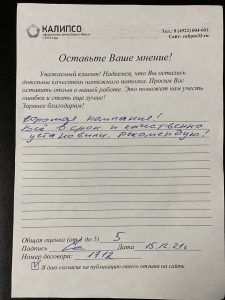 КАЛИПСО
Тел.: 8 (4922) 604-601
Сайт: calipso33.ru
Оставьте Ваше мнение!
Уважаемый клиент! Надеемся, что Вы остались
довольны качеством натяжного потолка. Просим Вас
оставить отзыв о нашей работе. Это поможет нам учесть
ошибки и стать еще лучше!
Заранее благодарим!
Хорошая компания!
Всё в срок и качественно
установили. Рекомендую!
Общая оценка (от 1 до 5) 5
Подпись Дата 15.12.21г.
Номер договора: 1912
Я даю согласие на публикацию своего отзыва на сайте